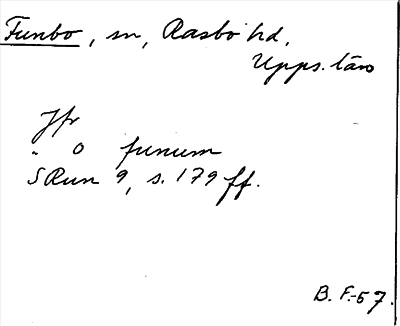 Funbo, sn, Rasbo hd,
Upps. län
Jfr
" O funum
SRun 9, s. 179 ff.
B. F.-57.